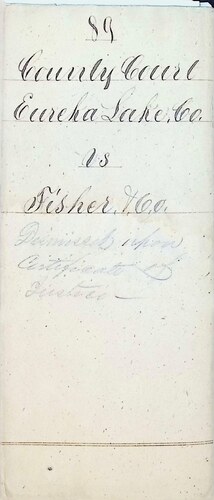 89
County Court
Eureka Lake, Co.
vs
Fisher, & Co.
Dismissed upon
Certificate of
Justice